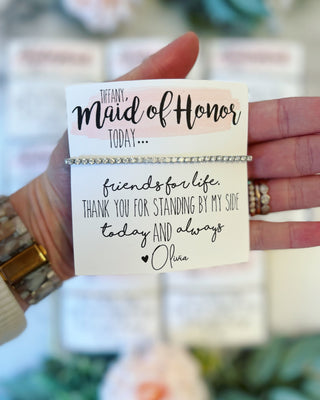 TIFFANY,
Maid of Honor
TODAY...
friends for life.
THANK YOU FOR STANDING BY MY SIDE
today AND always
♥Olivia